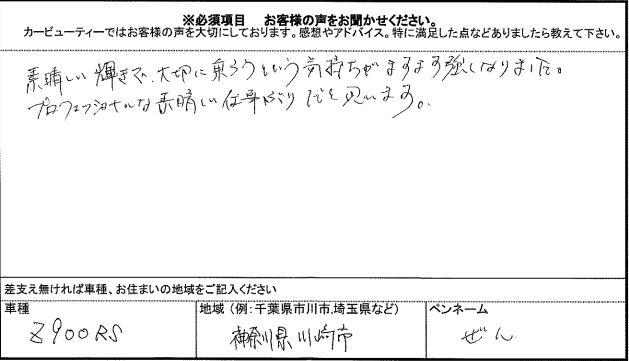 ※必須項目　お客様の声をお聞かせください。
カービューティーではお客様の声を大切にしております。感想やアドバイス。特に満足した点などありましたら教えて下さい。
素晴しい輝きで、大切に乗ろうという気持ちがますます強くなりました。
プロフェッショナルな素晴しい仕事ぶりだと思います。
差支え無ければ車種、お住まいの地域をご記入ください
車種　地域（例：千葉県市川市,埼玉県など）　ペンネーム
Z900RS　神奈川県川崎市　ぜん